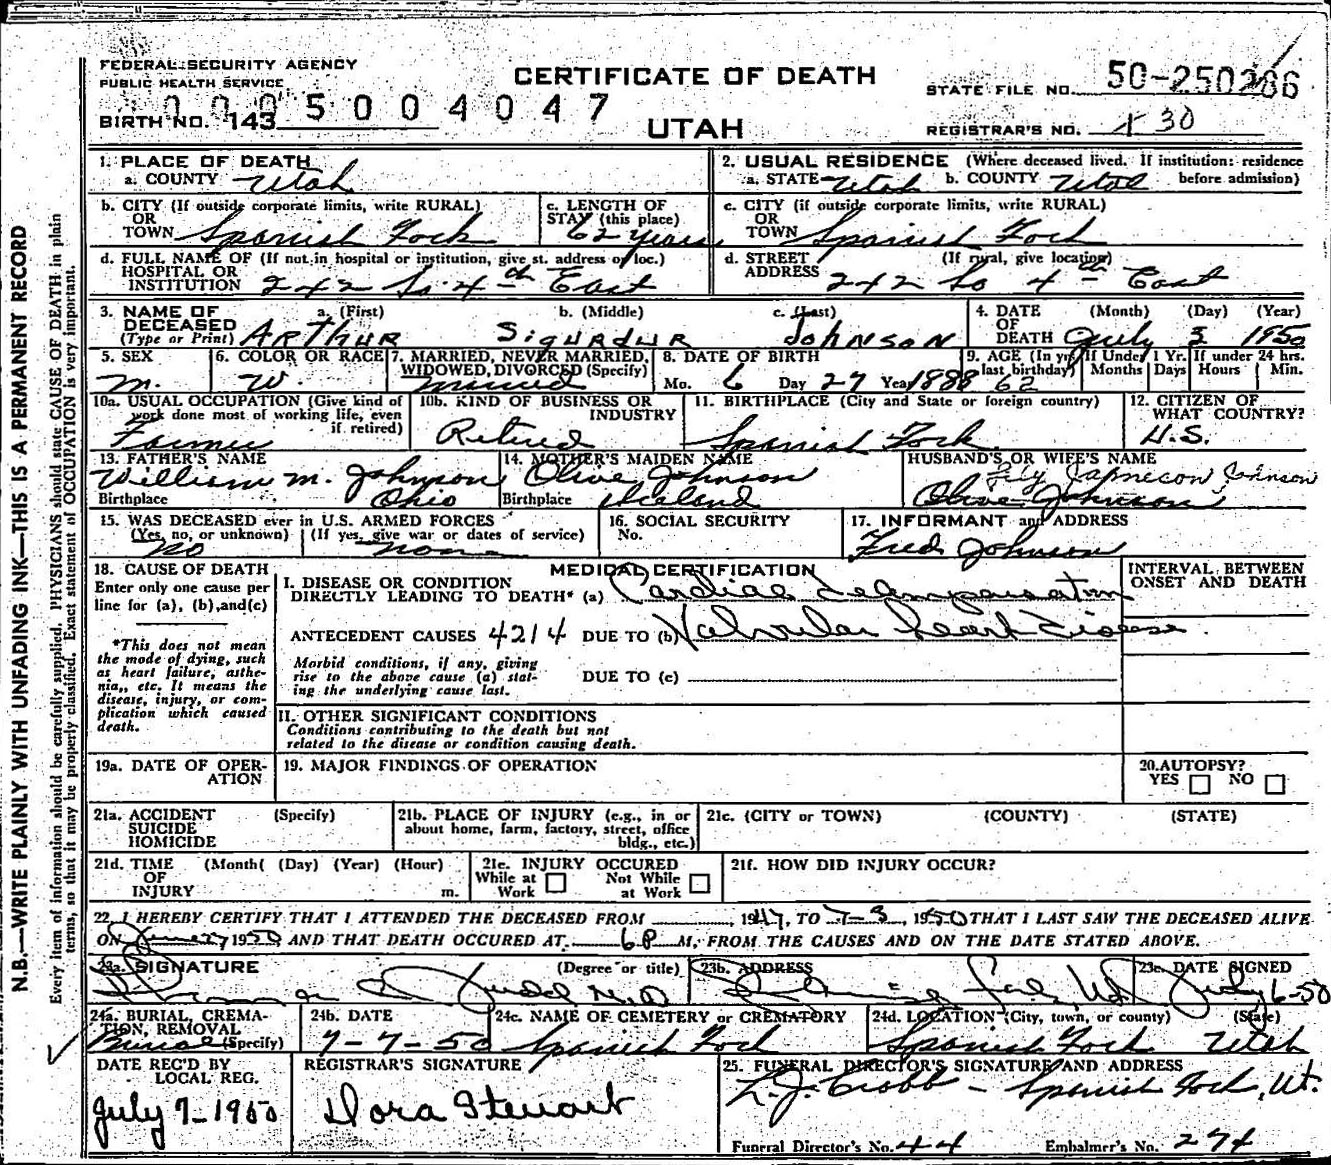 FEDERAL SECURITY AGENCY
PUBLIC HEALTH SERVICE
CERTIFICATE OF DEATH
UTAH
STATE FILE NO. 50-250286
REGISTRAR'S NO. 130
BIRTH NO. 143
0005004047
1. PLACE OF DEATH
a. COUNTY Utah
2. USUAL RESIDENCE (Where deceased lived. If institution: residence before admission)
a. STATE Utah b. COUNTY Utah
b. CITY (If outside corporate limits, write RURAL)
OR
TOWN Spanish Fork
c. LENGTH OF
STAY (this place)
62 years
c. CITY (if outside corporate limits, write RURAL)
OR
TOWN Spanish Fork
d. FULL NAME OF (If not in hospital or institution, give st. address or loc.)
HOSPITAL OR
INSTITUTION 242 So 4th East
d. STREET (If rural, give location)
ADDRESS 242 So 4th East
3. NAME OF DECEASED
(Type or Print)
a. (First) b. (Middle) c. (Last)
Arthur Sigurdur Johnson
4. DATE OF DEATH
(Month) (Day) (Year)
July 3 1950
5. SEX
M.
6. COLOR OR RACE
W.
7. MARRIED, NEVER MARRIED,
WIDOWED, DIVORCED (Specify)
Married
8. DATE OF BIRTH
Mo. 6 Day 27 Year 1888
9. AGE (In yrs. last birthday)
62
If Under 1 Yr.
Months Days
If under 24 hrs.
Hours Min.
10a. USUAL OCCUPATION (Give kind of
work done most of working life, even
if retired)
Farmer
10b. KIND OF BUSINESS OR
INDUSTRY
Retired
11. BIRTHPLACE (City and State or foreign country)
Spanish Fork
12. CITIZEN OF
WHAT COUNTRY?
U.S.
13. FATHER'S NAME
William M. Johnson
Birthplace Ohio
14. MOTHER'S MAIDEN NAME
Olive Johnson
Birthplace Iceland
HUSBAND'S OR WIFE'S NAME
Johnson
Olive Johnson
15. WAS DECEASED ever in U.S. ARMED FORCES
(Yes, no, or unknown) (If yes, give war or dates of service)
No none
16. SOCIAL SECURITY
No.
17. INFORMANT and ADDRESS
Fred Johnson
18. CAUSE OF DEATH
Enter only one cause per
line for (a), (b), and (c)
*This does not mean
the mode of dying, such
as heart failure, asthe-
nia,, etc. It means the
disease, injury, or com-
plication which caused
death.
MEDICAL CERTIFICATION
INTERVAL BETWEEN
ONSET AND DEATH
I. DISEASE OR CONDITION
DIRECTLY LEADING TO DEATH* (a) Cardiac decompensation
ANTECEDENT CAUSES 4214 DUE TO (b) Valvular heart disease
Morbid conditions, if any, giving
rise to the above cause (a) stat-
ing the underlying cause last.
DUE TO (c)
II. OTHER SIGNIFICANT CONDITIONS
Conditions contributing to the death but not
related to the disease or condition causing death.
19a. DATE OF OPER-
ATION
19. MAJOR FINDINGS OF OPERATION
20. AUTOPSY?
YES NO
21a. ACCIDENT (Specify)
SUICIDE
HOMICIDE
21b. PLACE OF INJURY (e.g., in or
about home, farm, factory, street, office
bldg., etc.)
21c. (CITY or TOWN) (COUNTY) (STATE)
21d. TIME (Month( (Day) (Year) (Hour)
OF
INJURY m.
21e. INJURY OCCURED
While at Work Not While at Work
21f. HOW DID INJURY OCCUR?
22. I HEREBY CERTIFY THAT I ATTENDED THE DECEASED FROM 1947, TO 7-3, 1950 THAT I LAST SAW THE DECEASED ALIVE
ON 1950 AND THAT DEATH OCCURED AT 6P M, FROM THE CAUSES AND ON THE DATE STATED ABOVE.
23a. SIGNATURE (Degree or title)
Judd M.D.
23b. ADDRESS
Spanish Fork, Ut
23c. DATE SIGNED
July 6-50
24a. BURIAL, CREMA-
TION, REMOVAL
(Specify) Burial
24b. DATE
7-7-50
24c. NAME OF CEMETERY or CREMATORY
Spanish Fork
24d. LOCATION (City, town, or county) (State)
Spanish Fork Utah
DATE REC'D BY
LOCAL REG.
July 7-1950
REGISTRAR'S SIGNATURE
Dora Stewart
25. FUNERAL DIRECTOR'S SIGNATURE AND ADDRESS
Spanish Fork, Ut.
Funeral Director's No. 44 Embalmer's No. 274
N.B.—WRITE PLAINLY WITH UNFADING INK—THIS IS A PERMANENT RECORD
Every item of information should be carefully supplied. PHYSICIANS should state CAUSE OF DEATH in plain
terms, so that it may be properly classified. Exact statement of OCCUPATION is very important.